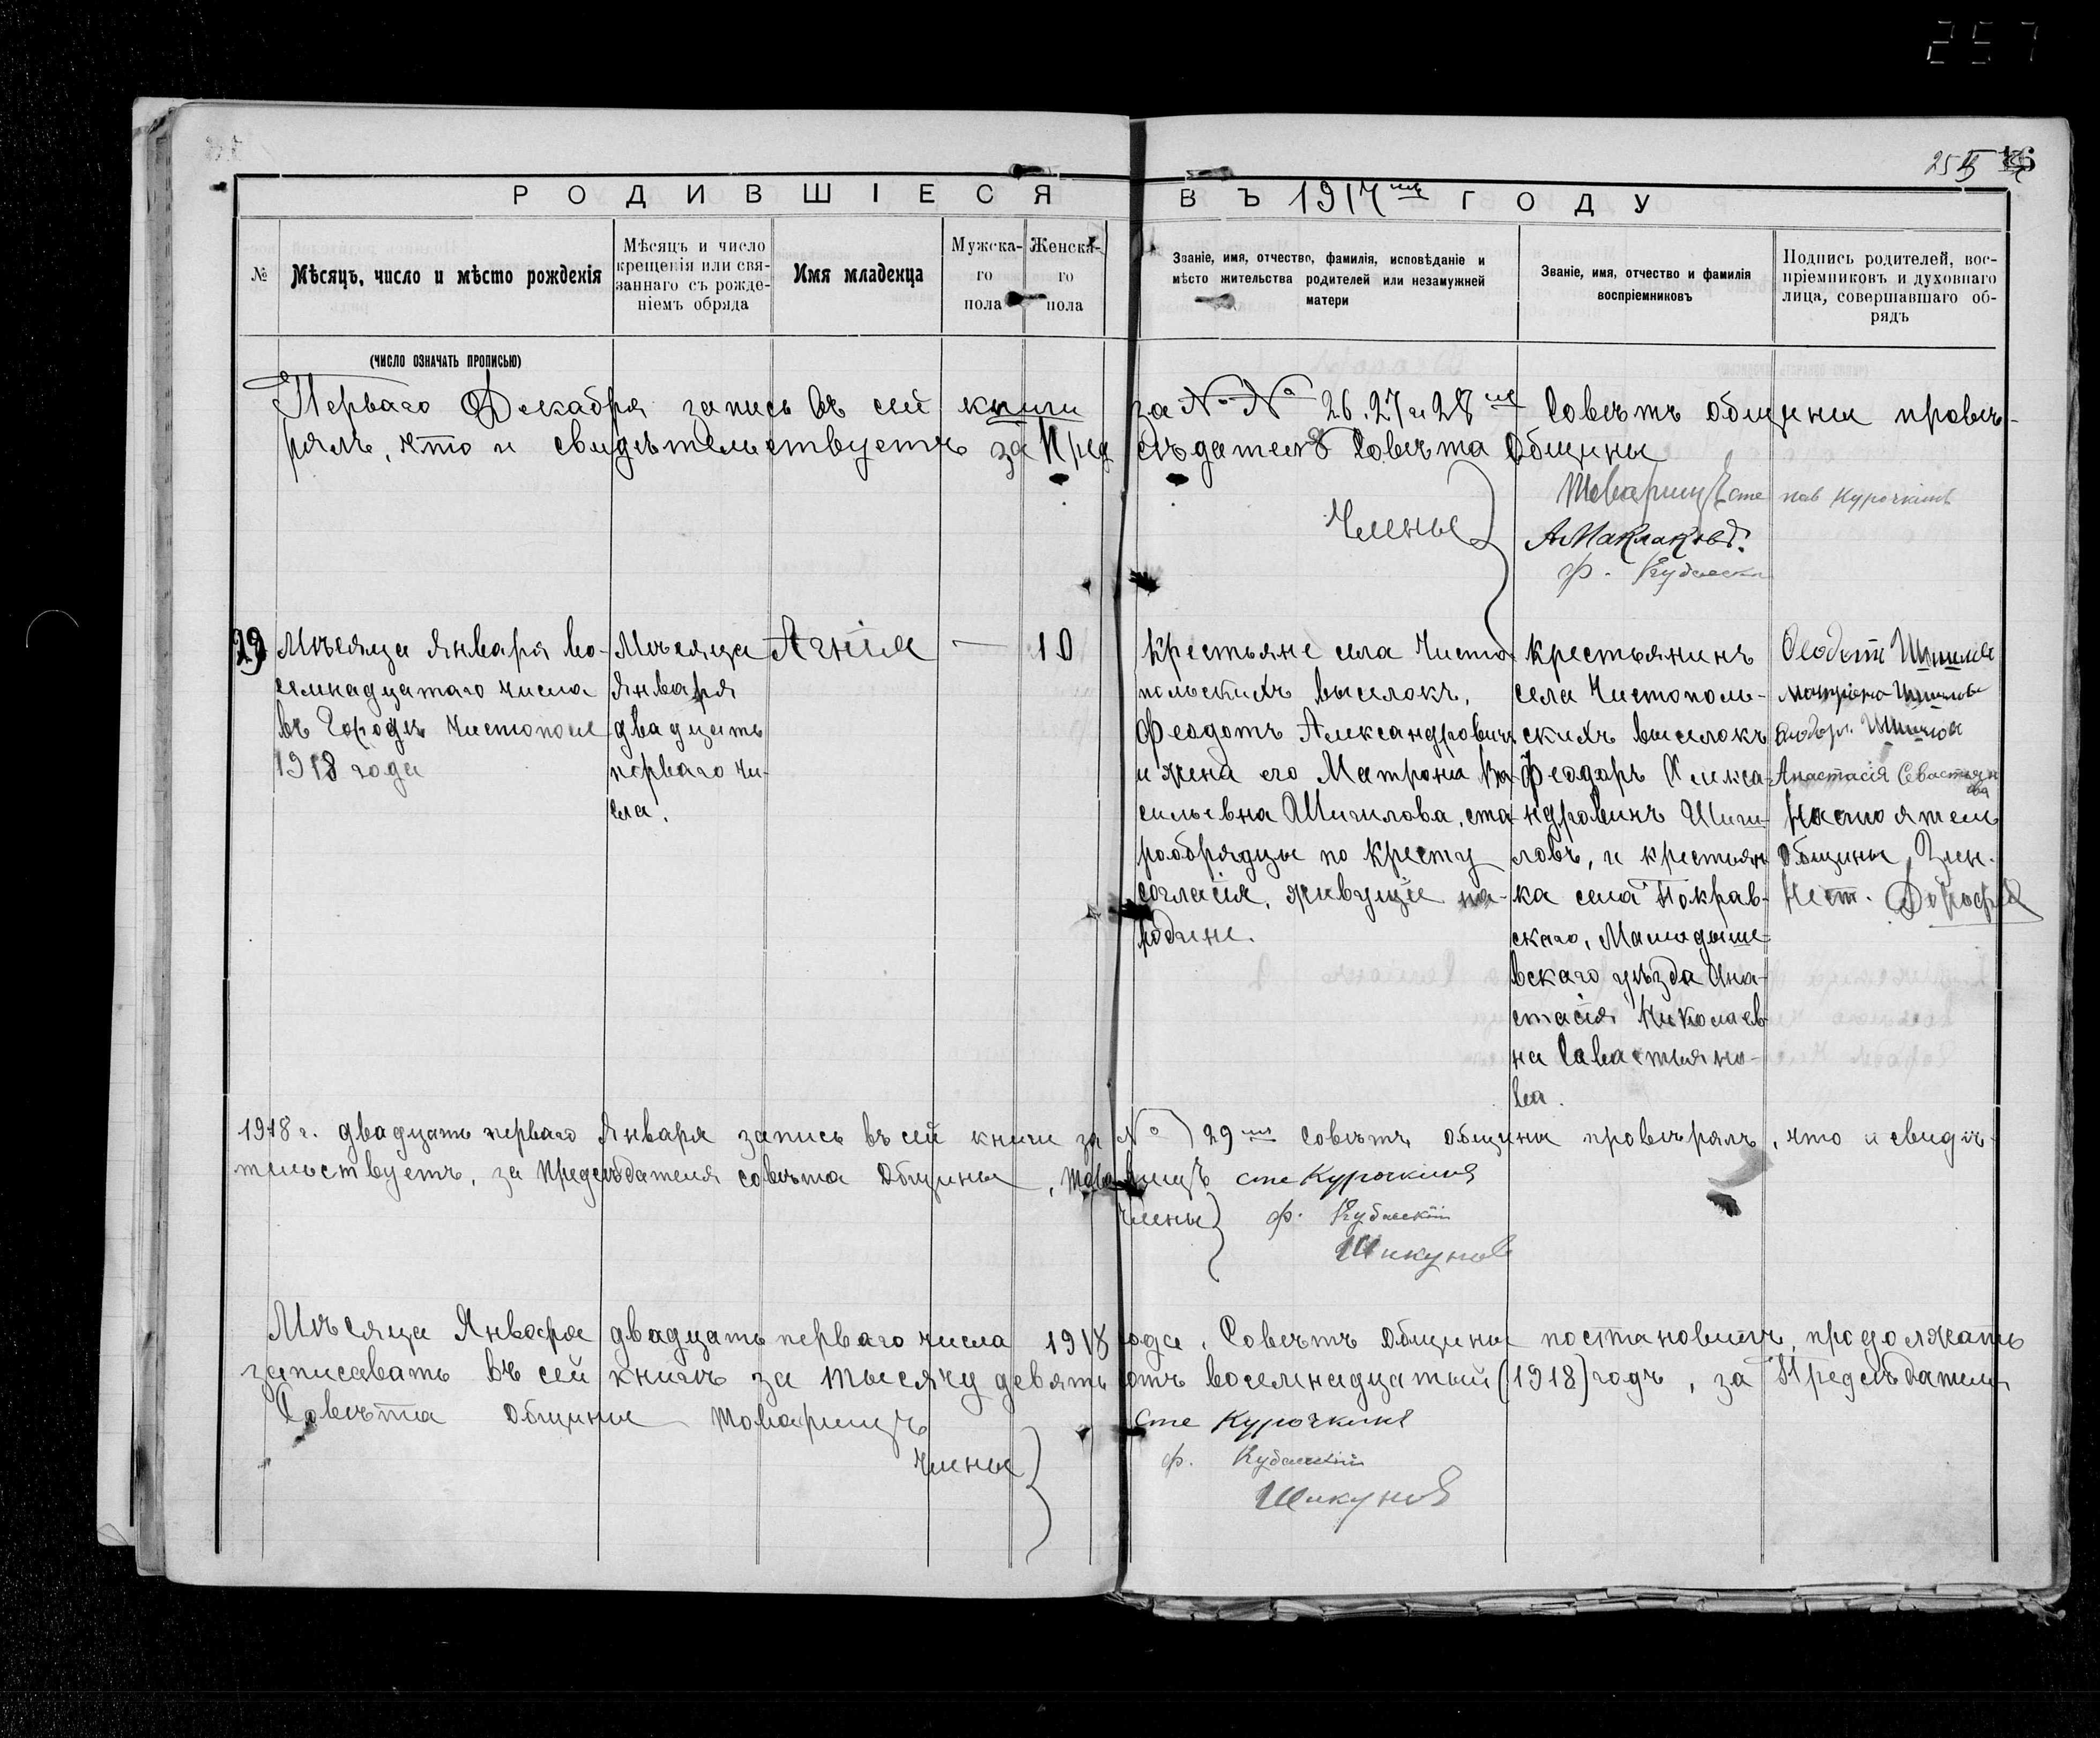 257
255
РОДИВШІЕСЯ ВЪ 1917 ГОДУ
№
Мѣсяцъ, число и мѣсто рожденія
(число означать прописью)
Мѣсяцъ и число
крещенія или свя-
заннаго съ рожде-
ніемъ обряда
Имя младенца
Мужска-
го
пола
Женска-
го
пола
Званіе, имя, отчество, фамилія, исповѣданіе и
мѣсто жительства родителей или незамужней
матери
Званіе, имя, отчество и фамилія
воспріемниковъ
Подпись родителей, вос-
пріемниковъ и духовнаго
лица, совершавшаго об-
рядъ
Перваго Декабря запись въ сей книги за № № 26. 27 и 28 Совѣтъ общины провѣ-
рялъ, что и свидѣтельствуетъ за Пред сѣдателя Совѣта Общины
Товарищъ Сте Курочкинъ
Члены
А Маклаковъ.
Ф.
29
Мѣсяца Января во-
семнадцатаго числа
въ Городѣ Чистополе
1918 года
Мѣсяца
Января
двадцать
перваго чи-
сла.
Агнія
—
10
Крестьяне села Чисто-
польскихъ выселокъ,
Феодотъ Александровичъ
и жена его Матрона Ва-
сильевна Шигилова, ста-
рообрядцы по кресту
согласія, живущіе на-
родине.
Крестьянинъ
села Чистополь-
скихъ выселокъ
Феодоръ Алекса-
ндровичъ Шиги-
ловъ, и крестьян-
ка села Покров-
скаго, Мамадыше-
вскаго уѣзда Ана-
стасія Николаев-
на Савастьяно-
ва.
Феодотъ
Матрона
Анастасія Севастьянова
Настоятель
Общины
1918 г. двадцать перваго Января запись въ сей книги за № 29 Совѣтъ общины провѣрялъ, что и свидѣ-
тельствуетъ, за Предсѣдателя совѣта Общины, Товарищъ Сте Курочкинъ
Члены
Ф. Кубасскій
Шикуновъ
Мѣсяца Января двадцать перваго числа 1918 года. Совѣтъ Общины постановилъ продолжать
записавать въ сей книгѣ за тысячу девятьсотъ восемнадцатый (1918) годъ, за Предсѣдателя
Совѣта Общины Товарищъ Сте Курочкинъ
Члены
Ф. Кубасскій
Шикуновъ